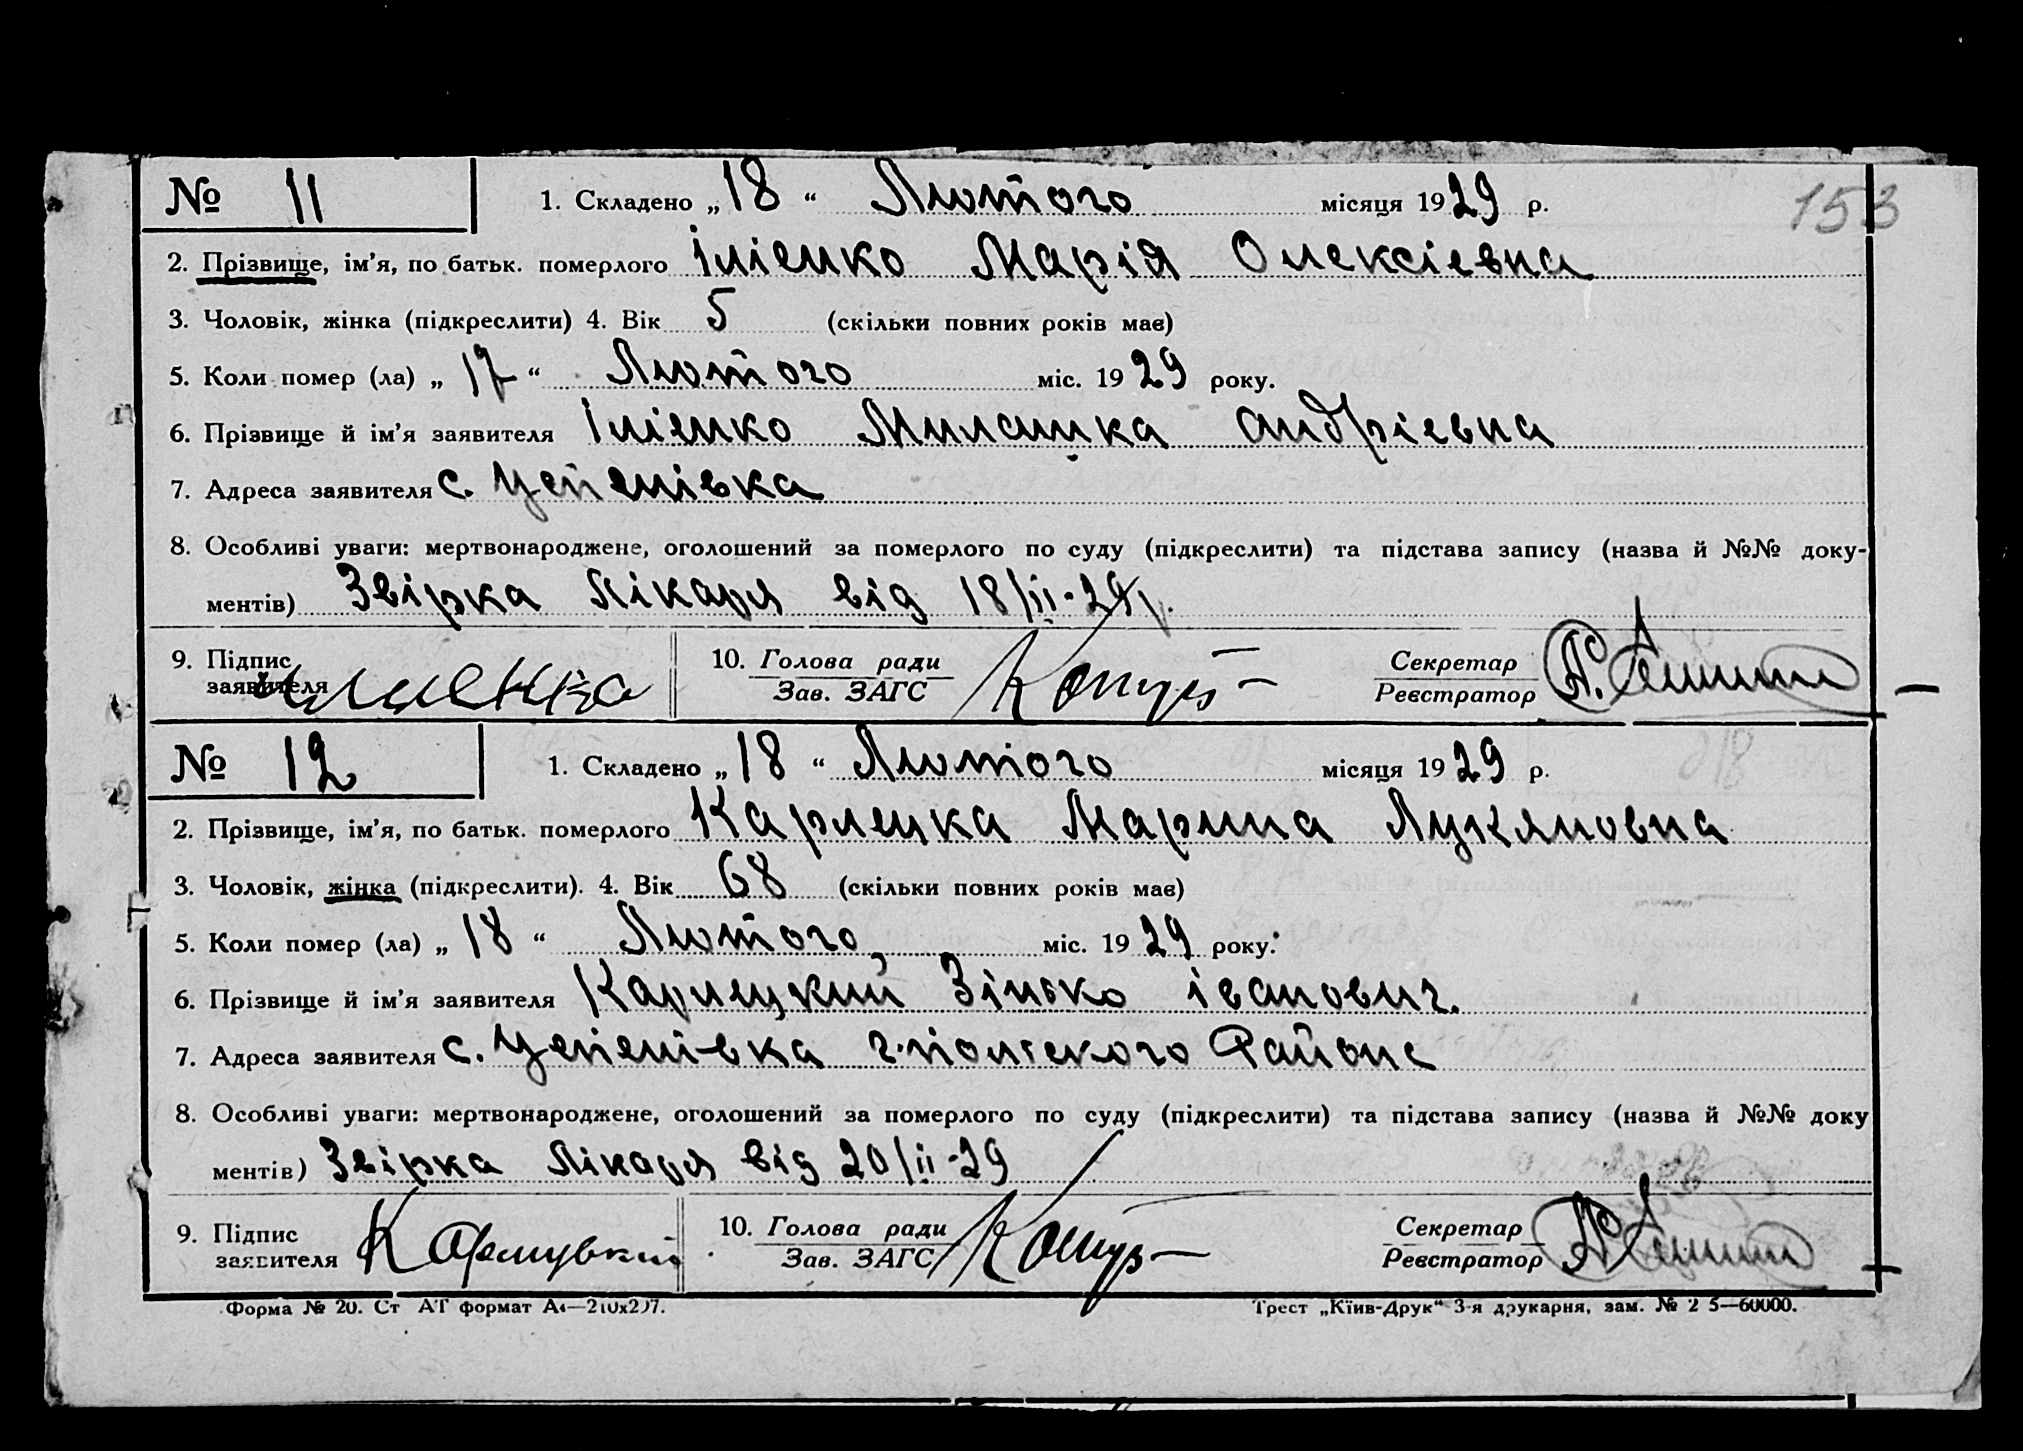 153
№ 11 1. Складено „18“ Лютого місяця 1929 р.
2. Прізвище, ім’я, по батьк. померлого Ілієнко Марія Олексієвна
3. Чоловік, жінка (підкреслити) 4. Вік 5 (скільки повних років має)
5. Коли помер (ла) „17“ Лютого міс. 1929 року.
6. Прізвище й ім’я заявителя Ілієнко Андрієвна
7. Адреса заявителя с. Цепенівка
8. Особливі уваги: мертвонароджене, оголошений за померлого по суду (підкреслити) та підстава запису (назва й №№ доку-
ментів) Звірка Лікаря від 18/ІІ-29р.
9. Підпис заявителя 10. Голова ради Секретар
Зав. ЗАГС Реєстратор
№ 12 1. Складено „18“ Лютого місяця 1929 р.
2. Прізвище, ім’я, по батьк. померлого Карлецка Марина Лукяновна
3. Чоловік, жінка (підкреслити). 4. Вік 68 (скільки повних років має)
5. Коли помер (ла) „18“ Лютого міс. 1929 року.
6. Прізвище й ім’я заявителя Карлецкий Зінько іванович.
7. Адреса заявителя с. Цепенівка Району
8. Особливі уваги: мертвонароджене, оголошений за померлого по суду (підкреслити) та підстава запису (назва й №№ доку
ментів) Звірка Лікаря від 20/ІІ-29
9. Підпис заявителя 10. Голова ради Секретар
Зав. ЗАГС Реєстратор
Форма № 20. Ст АТ формат А4—210х297. Трест „Київ-Друк“ 3-я друкарня, зам. № 2 5—60000.